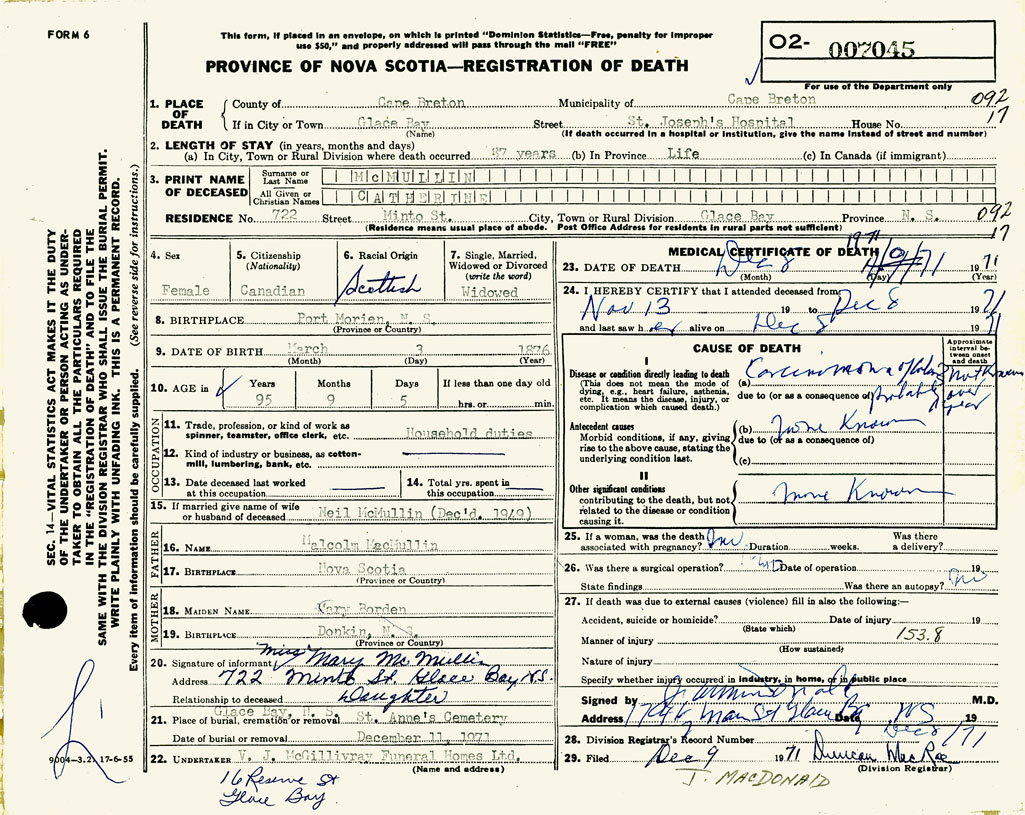 FORM 6
This form, if placed in an envelope, on which is printed "Dominion Statistics—Free, penalty for improper
use $50," and properly addressed will pass through the mail "FREE"
PROVINCE OF NOVA SCOTIA—REGISTRATION OF DEATH
O2- 007045
For use of the Department only
SEC. 14—VITAL STATISTICS ACT MAKES IT THE DUTY
OF THE UNDERTAKER OR PERSON ACTING AS UNDER-
TAKER TO OBTAIN ALL THE PARTICULARS REQUIRED
IN THE "REGISTRATION OF DEATH" AND TO FILE THE
SAME WITH THE DIVISION REGISTRAR WHO SHALL ISSUE THE BURIAL PERMIT.
WRITE PLAINLY WITH UNFADING INK. THIS IS A PERMANENT RECORD.
Every item of information should be carefully supplied. (See reverse side for instructions.)
1. PLACE OF DEATH
County of Cape Breton Municipality of Cape Breton 092
If in City or Town Glace Bay Street St. Joseph's Hospital House No. 17
(Name) (If death occurred in a hospital or institution, give the name instead of street and number)
2. LENGTH OF STAY (in years, months and days)
(a) In City, Town or Rural Division where death occurred 87 years (b) In Province Life (c) In Canada (if immigrant)
3. PRINT NAME OF DECEASED
Surname or Last Name McMULLIN
All Given or Christian Names CATHERINE
RESIDENCE No. 722 Street Minto St. City, Town or Rural Division Glace Bay Province N. S. 092
(Residence means usual place of abode. Post Office Address for residents in rural parts not sufficient) 17
4. Sex
Female
5. Citizenship
(Nationality)
Canadian
6. Racial Origin
Scottish
7. Single, Married,
Widowed or Divorced
(write the word)
Widowed
8. BIRTHPLACE Port Morien, N. S.
(Province or Country)
9. DATE OF BIRTH March 3 1876
(Month) (Day) (Year)
10. AGE in Years Months Days If less than one day old
95 9 5 hrs. or min.
OCCUPATION
11. Trade, profession, or kind of work as
spinner, teamster, office clerk, etc. Household duties
12. Kind of industry or business, as cotton-
mill, lumbering, bank, etc.
13. Date deceased last worked
at this occupation
14. Total yrs. spent in
this occupation
15. If married give name of wife
or husband of deceased Neil McMullin (Dec'd. 1949)
FATHER
16. NAME Malcolm MacMullin
17. BIRTHPLACE Nova Scotia
(Province or Country)
MOTHER
18. MAIDEN NAME Mary Borden
19. BIRTHPLACE Donkin, N. S.
(Province or Country)
20. Signature of informant Miss Mary Mc Mullin
Address 722 Minto St. Glace Bay, N.S.
Relationship to deceased Daughter
Glace Bay, N. S.
21. Place of burial, cremation or removal St. Anne's Cemetery
Date of burial or removal December 11, 1971
22. UNDERTAKER V. J. McGillivray Funeral Homes Ltd.
(Name and address)
16 Reserve St
Glace Bay
9004—3.2. 17-6-55
MEDICAL CERTIFICATE OF DEATH
1971
23. DATE OF DEATH Dec 8 1971
(Month) (Day) (Year)
24. I HEREBY CERTIFY that I attended deceased from
Nov 13 19 to Dec 8 1971
and last saw her alive on Dec 8 1971
CAUSE OF DEATH
Approximate interval between onset and death
I
Disease or condition directly leading to death
(This does not mean the mode of
dying, e.g., heart failure, asthenia,
etc. It means the disease, injury, or
complication which caused death.)
(a) Carcinoma of Colon Not Known
due to (or as a consequence of) probably over year
Antecedent causes
Morbid conditions, if any, giving
rise to the above cause, stating the
underlying condition last.
(b) None Known
due to (or as a consequence of)
(c)
II
Other significant conditions
contributing to the death, but not
related to the disease or condition
causing it.
None Known
25. If a woman, was the death
associated with pregnancy? No Duration weeks. Was there
a delivery?
26. Was there a surgical operation? No Date of operation 19
State findings Was there an autopsy? No
27. If death was due to external causes (violence) fill in also the following:—
Accident, suicide or homicide? Date of injury 19
(State which)
Manner of injury 153.8
(How sustained)
Nature of injury
Specify whether injury occurred in industry, in home, or in public place
Signed by M.D.
Address Main St Glace Bay NS Date Dec 8/71 19
28. Division Registrar's Record Number
29. Filed Dec 9 1971 Duncan MacRae
(Division Registrar)
J. MACDONALD